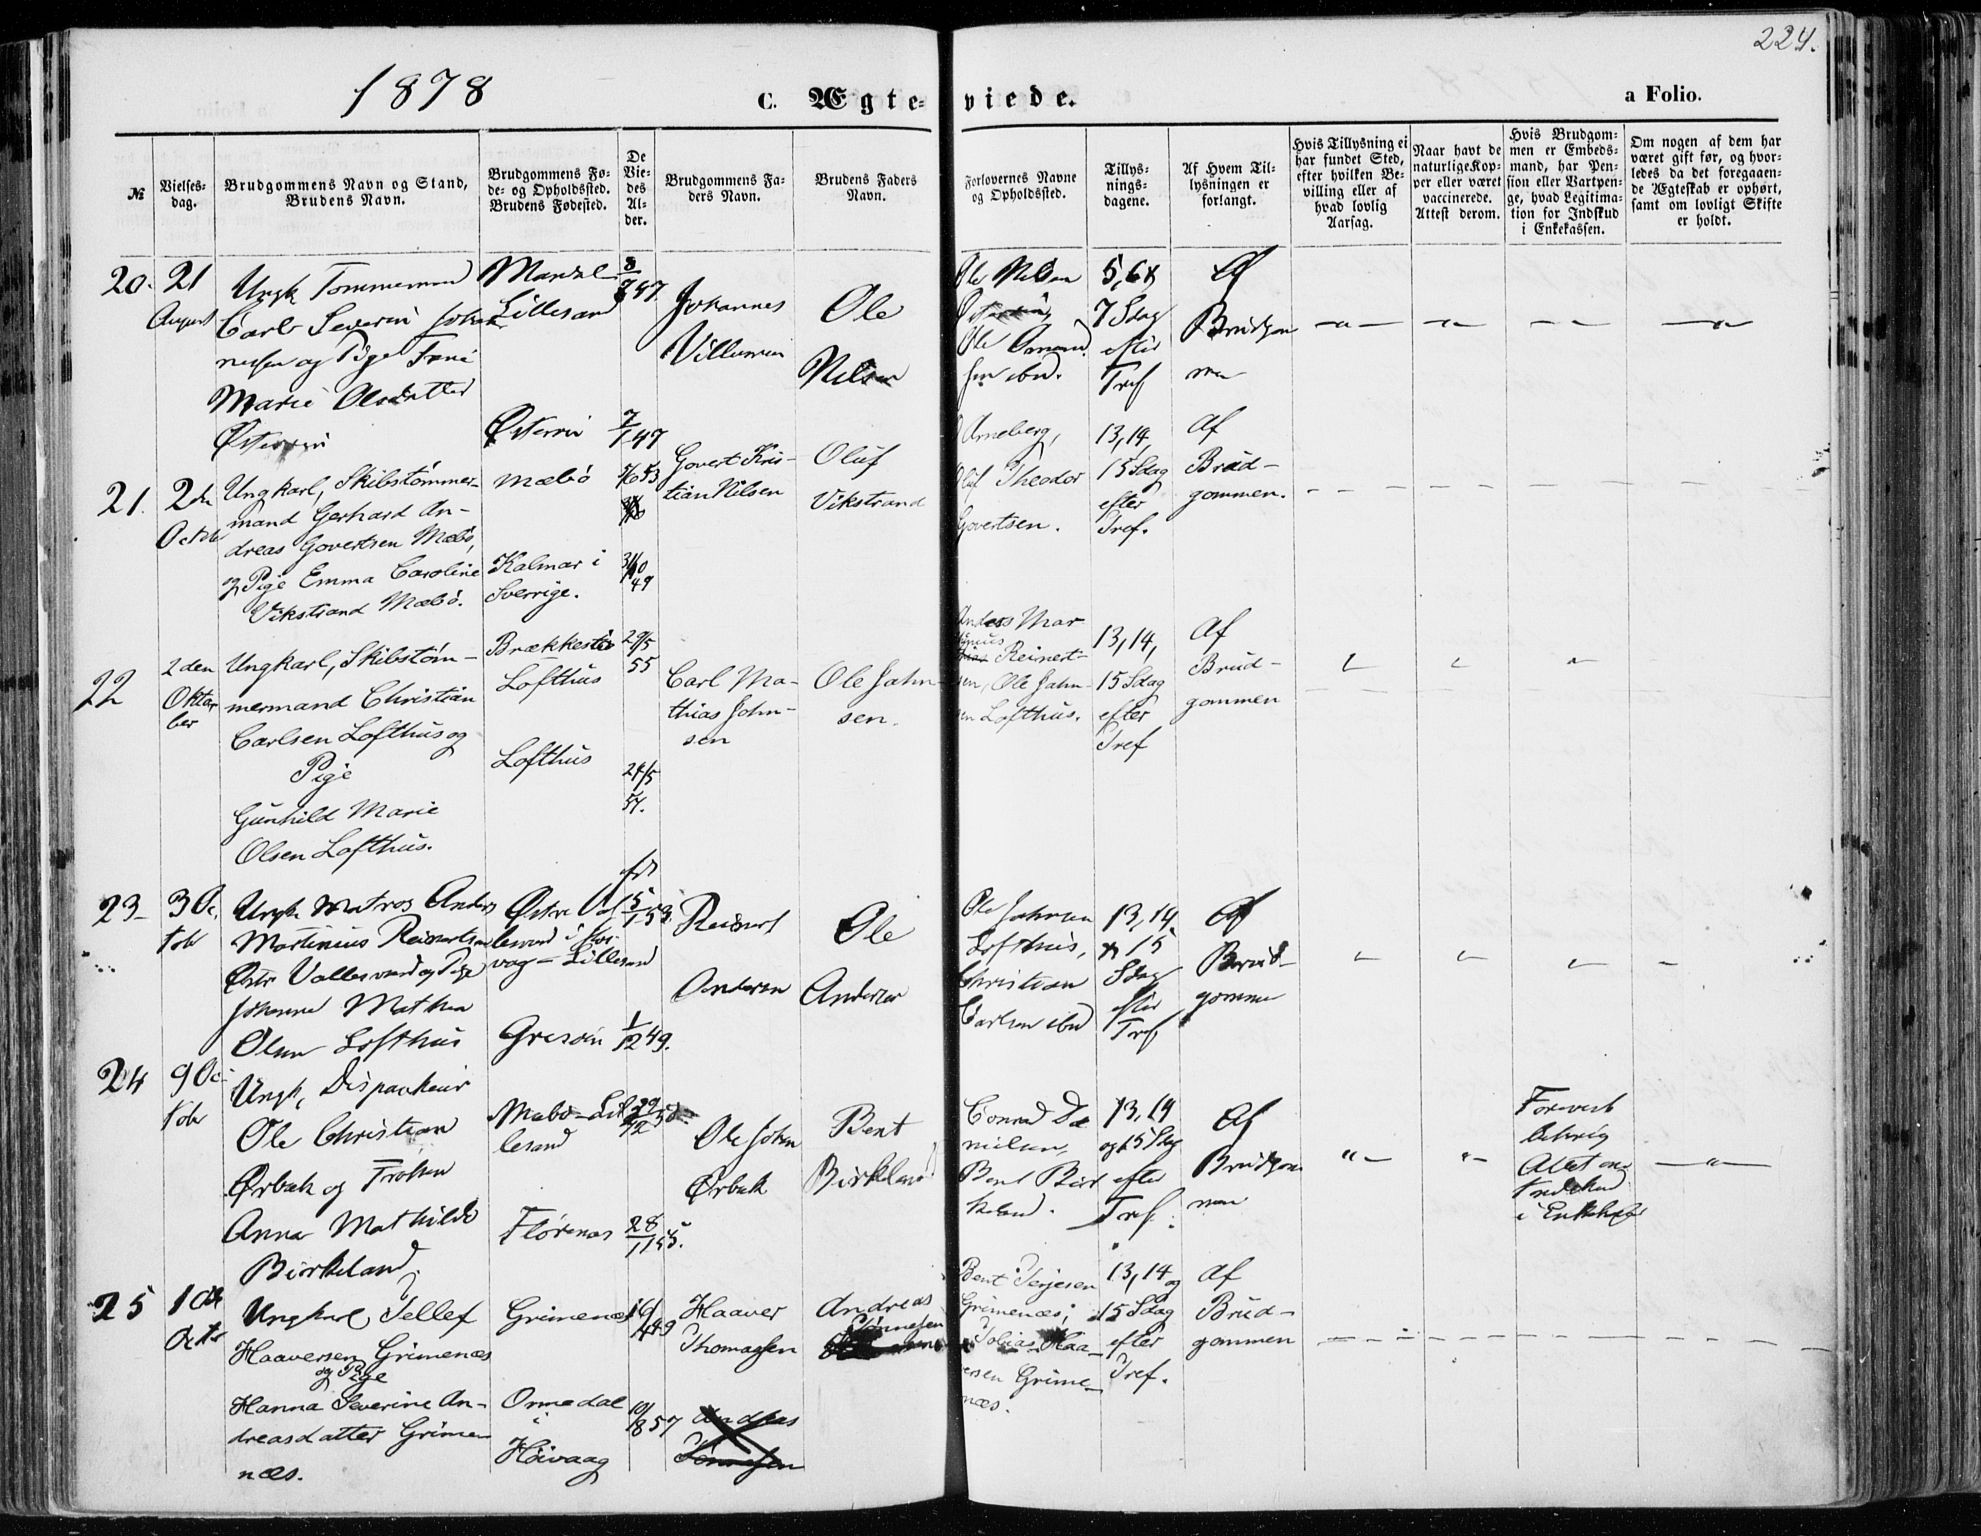 224.
1878
C. Ægteviede.
a Folio.
№
Vielsesdag.
Brudgommens Navn og Stand,
Brudens Navn.
Brudgommens Føde- og Opholdssted.
Brudens Fødested.
De Viedes Alder.
Brudgommens Faders Navn.
Brudens Faders
Navn.
Forlovernes Navne
og Opholdssted.
Tillysningsdagene.
Af Hvem Tillysningen er
forlangt.
Hvis Tillysning ei
har fundet Sted,
efter hvilken Bevilling eller af
hvad lovlig
Aarsag.
Naar havt de
naturlige Kopper eller været
vaccinerede.
Attest derom.
Hvis Brudgommen er Embedsmand, har Pension eller Vartpenge, hvad Legitimation for Indskud
i Enkekassen.
Om nogen af dem har
været gift før, og hvorledes da det foregaaende Ægteskab er ophørt,
samt om lovligt Skifte
er holdt.
20. 21
August
Ungk. Tømmermand
Carl Severin Johan
nesen og Pige
Marie Olsdatter
Lillesand
Johannes
Villumsen
Ole
Nilsen
Ole Nilsen
5, 6 &
7 Sdag
efter
Tref
Af
Brudgom
men
7/1 47
21. 2den
Octob
Ungkarl, Skibstømmer-
mand Gerhard An-
dreas Govertsen Mæbø,
og Pige Emma Caroline
Vikstrand Mæbø.
Mæbø
Kalmar i
Sverrige.
5/6 53
31/10
49
Govert Kris-
tian Nilsen
Oluf
Vikstrand
Arneberg,
Oluf Theodor
Govertsen.
13, 14,
15 Sdag
efter
Tref.
Af
Brud-
gommen.
22
2den
Okto-
ber
Ungkarl, Skibstøm-
mermand Christian
Carlsen Lofthus og
Pige
Gunhild Marie
Olsen Lofthus.
Brækkestø
Lofthus
Lofthus
29/5
55
24/5
54.
Carl Ma-
thias John-
sen
Ole Jahn-
sen.
Anders Mar
tinius
Reinert-
sen, Ole Jahn-
sen Lofthus.
13, 14,
15 Sdag
efter
Tref
Af
Brud-
gommen
23 3 Oc
tobr
Ungk. Matros Anders
Martinius Reinertsen
Østre Vallesværd og Pige
Johanne Mathea
Olsen Lofthus
15/1 53.
1/12 49.
Reinert
Andersen
Ole
Andersen
Ole Jahnsen
Lofthus,
Christian
Carlsen ibd
13, 14
& 15
Sdag
efter
Tref
Af
Brud-
gommen
24 9 Oc
tobr
Ungk. Dispacheur
Ole Christian
Ørbek og Frøken
Anna Mathilde
Birkeland.
Mæbø - Lil
lesand
Florenes
28/11 55.
Ole John
Ørbek
Bent
Birkeland
Conrad Da
nielsen,
Bent Bir
keland.
13, 14
og 15 Sdg
efter
Tref.
Af
Brudgom
men
Forevist
behørig
Attest om
Indskud
i Enkekasse
25 10de
Octbr
Ungkarl Tellef
Haaversen Grimenæs
og Pige
Hanna Severine An-
dreasdatter Grime-
næs.
Grimenæs
Omedal
i
Høivaag
19/8 57
Haaver
Thomassen
Andreas
Tønnesen
Andreas
Tønnesen
Bent Terjesen
Grimenæs;
Tobias Haa-
versen Grime-
næs.
13, 14 og
15 Sdag
efter
Tref.
Af
Brud-
gommen